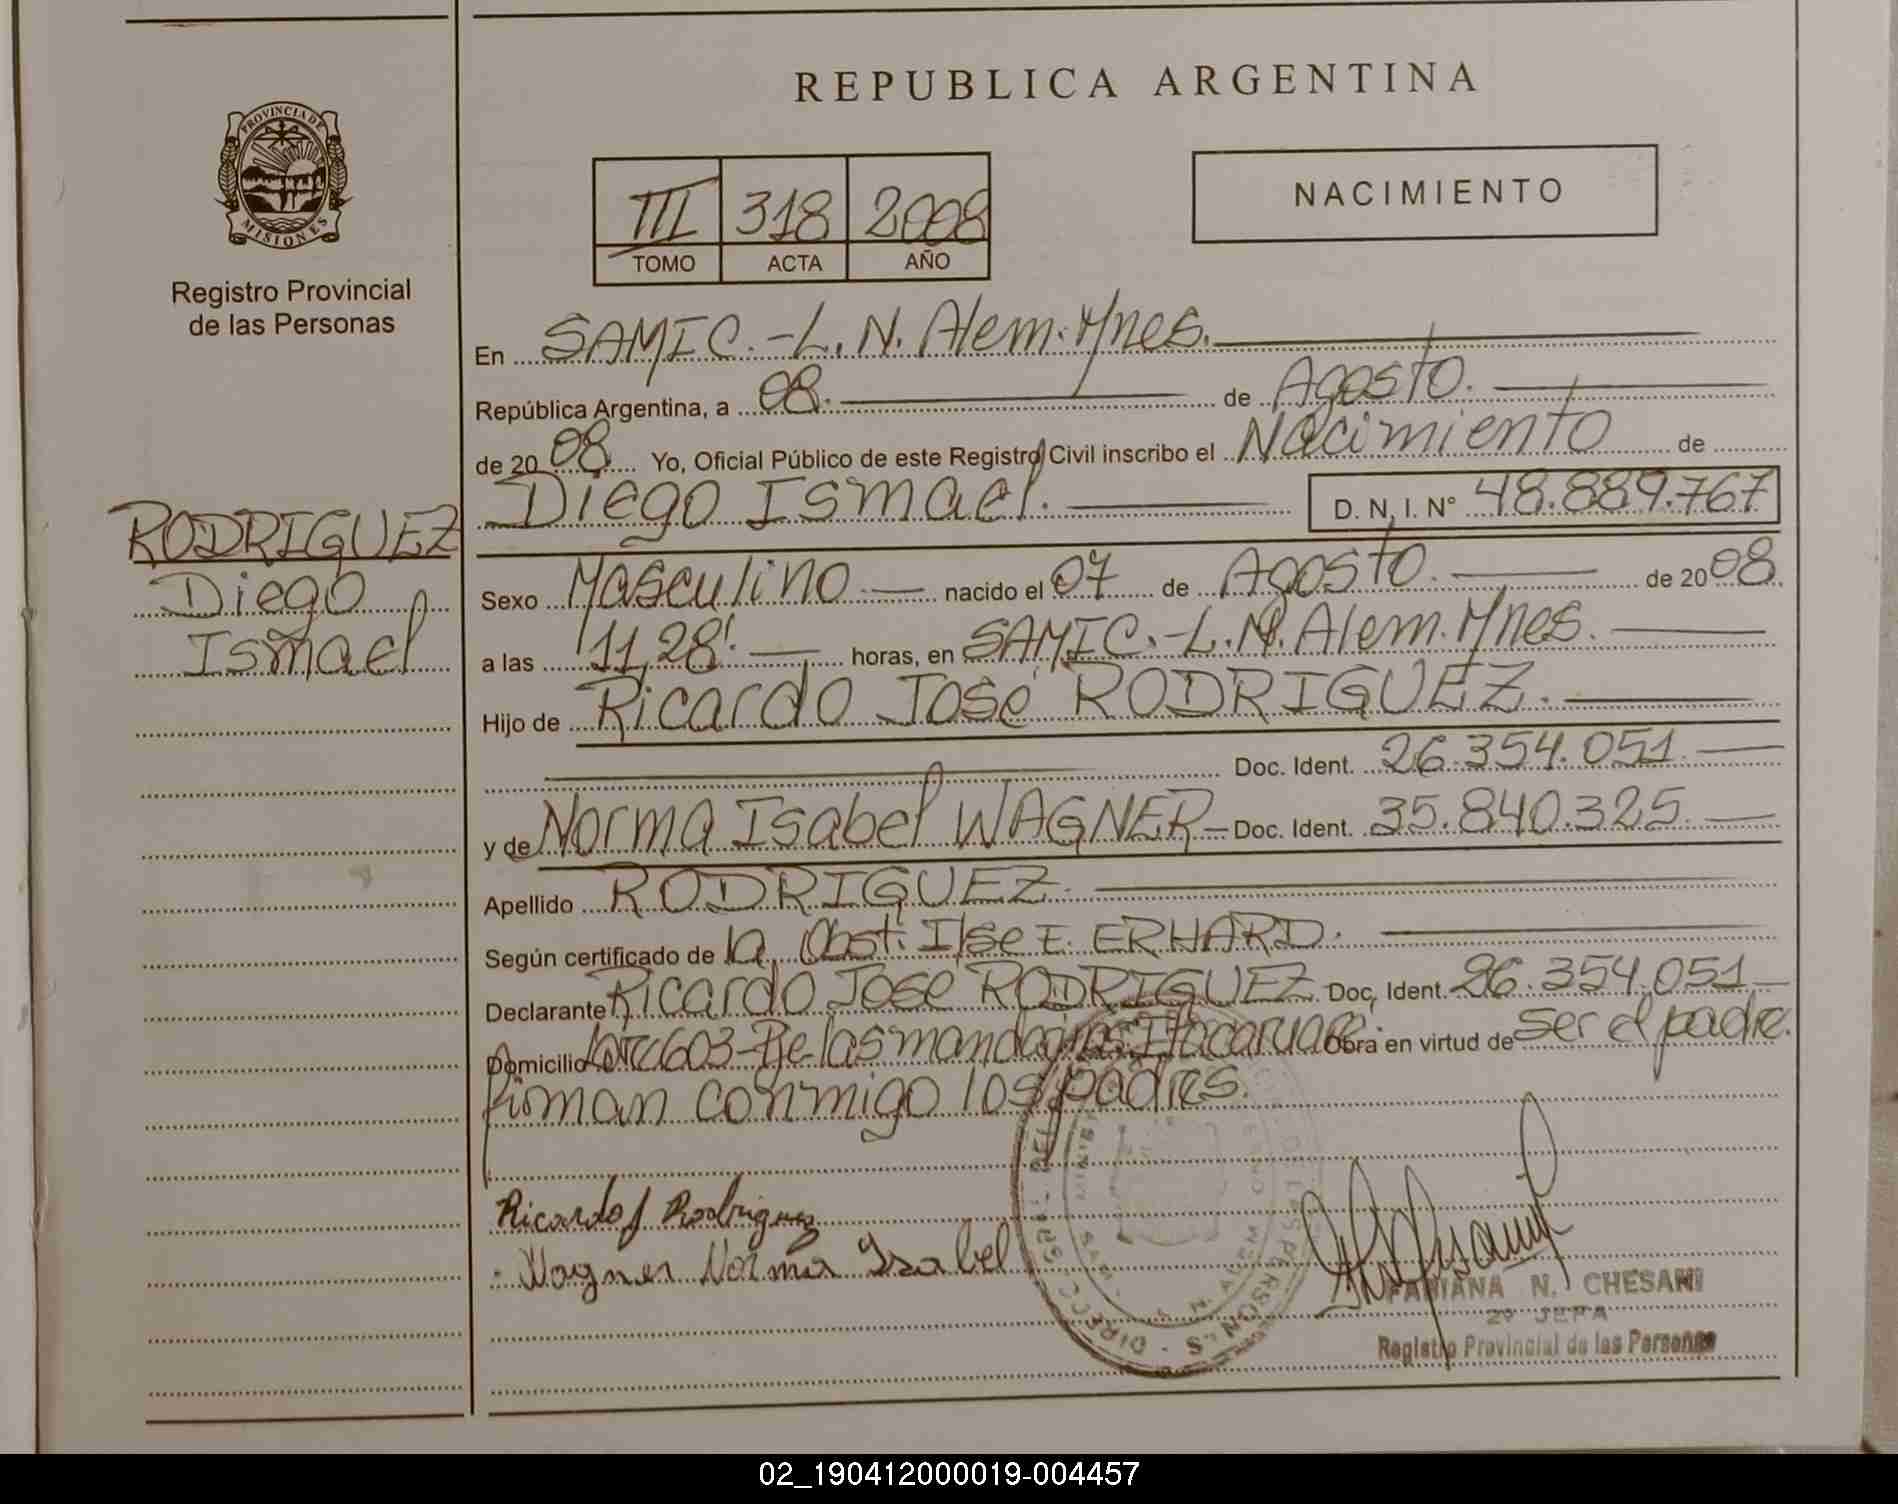 REPUBLICA ARGENTINA
PROVINCIA DE
MISIONES
Registro Provincial
de las Personas
III 318 2008
TOMO ACTA AÑO
NACIMIENTO
En SAMIC.-L.N. Alem. Mnes.
República Argentina, a 08. de Agosto.
de 2008 Yo, Oficial Público de este Registro Civil inscribo el Nacimiento de
Diego Ismael. D. N. I. N° 48.889.767
RODRIGUEZ
Diego
Ismael
Sexo Masculino nacido el 07 de Agosto. de 2008
a las 11,28'. horas, en SAMIC.-L.N. Alem. Mnes.
Hijo de Ricardo José RODRIGUEZ.
Doc. Ident. 26.354.051
y de Norma Isabel WAGNER - Doc. Ident. 35.840.325
Apellido RODRIGUEZ.
Según certificado de la Obst. Ilse E. ERHARD.
Declarante Ricardo José RODRIGUEZ Doc. Ident. 26.354.051
Domicilio Lote 603- las Obra en virtud de ser el padre.
firman conmigo los padres.
Ricardo J Rodriguez
Wagner Norma Isabel
FABIANA N. CHESANI
2º JEFA
Registro Provincial de las Personas
02_190412000019-004457